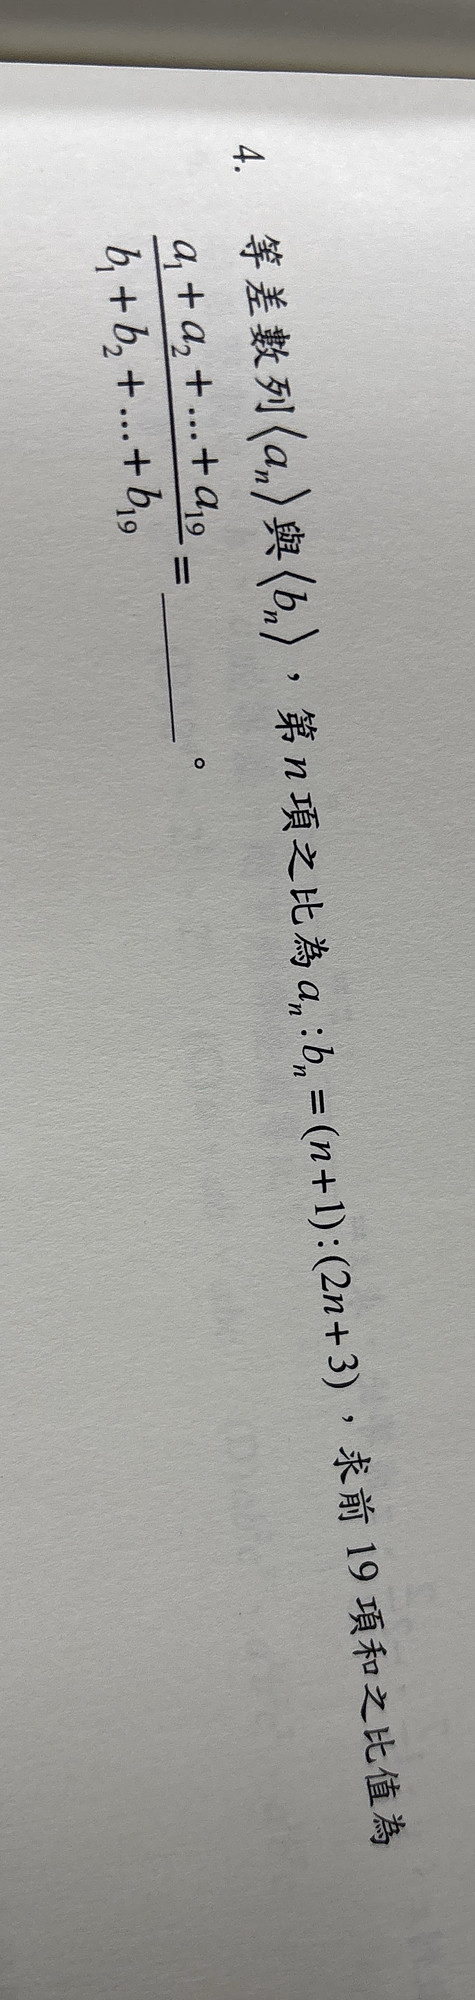 4. 等差數列⟨aₙ⟩與⟨bₙ⟩，第 n 項之比為 aₙ:bₙ=(n+1):(2n+3)，求前 19 項和之比值為
a₁+a₂+...+a₁₉
b₁+b₂+...+b₁₉
=＿＿＿。